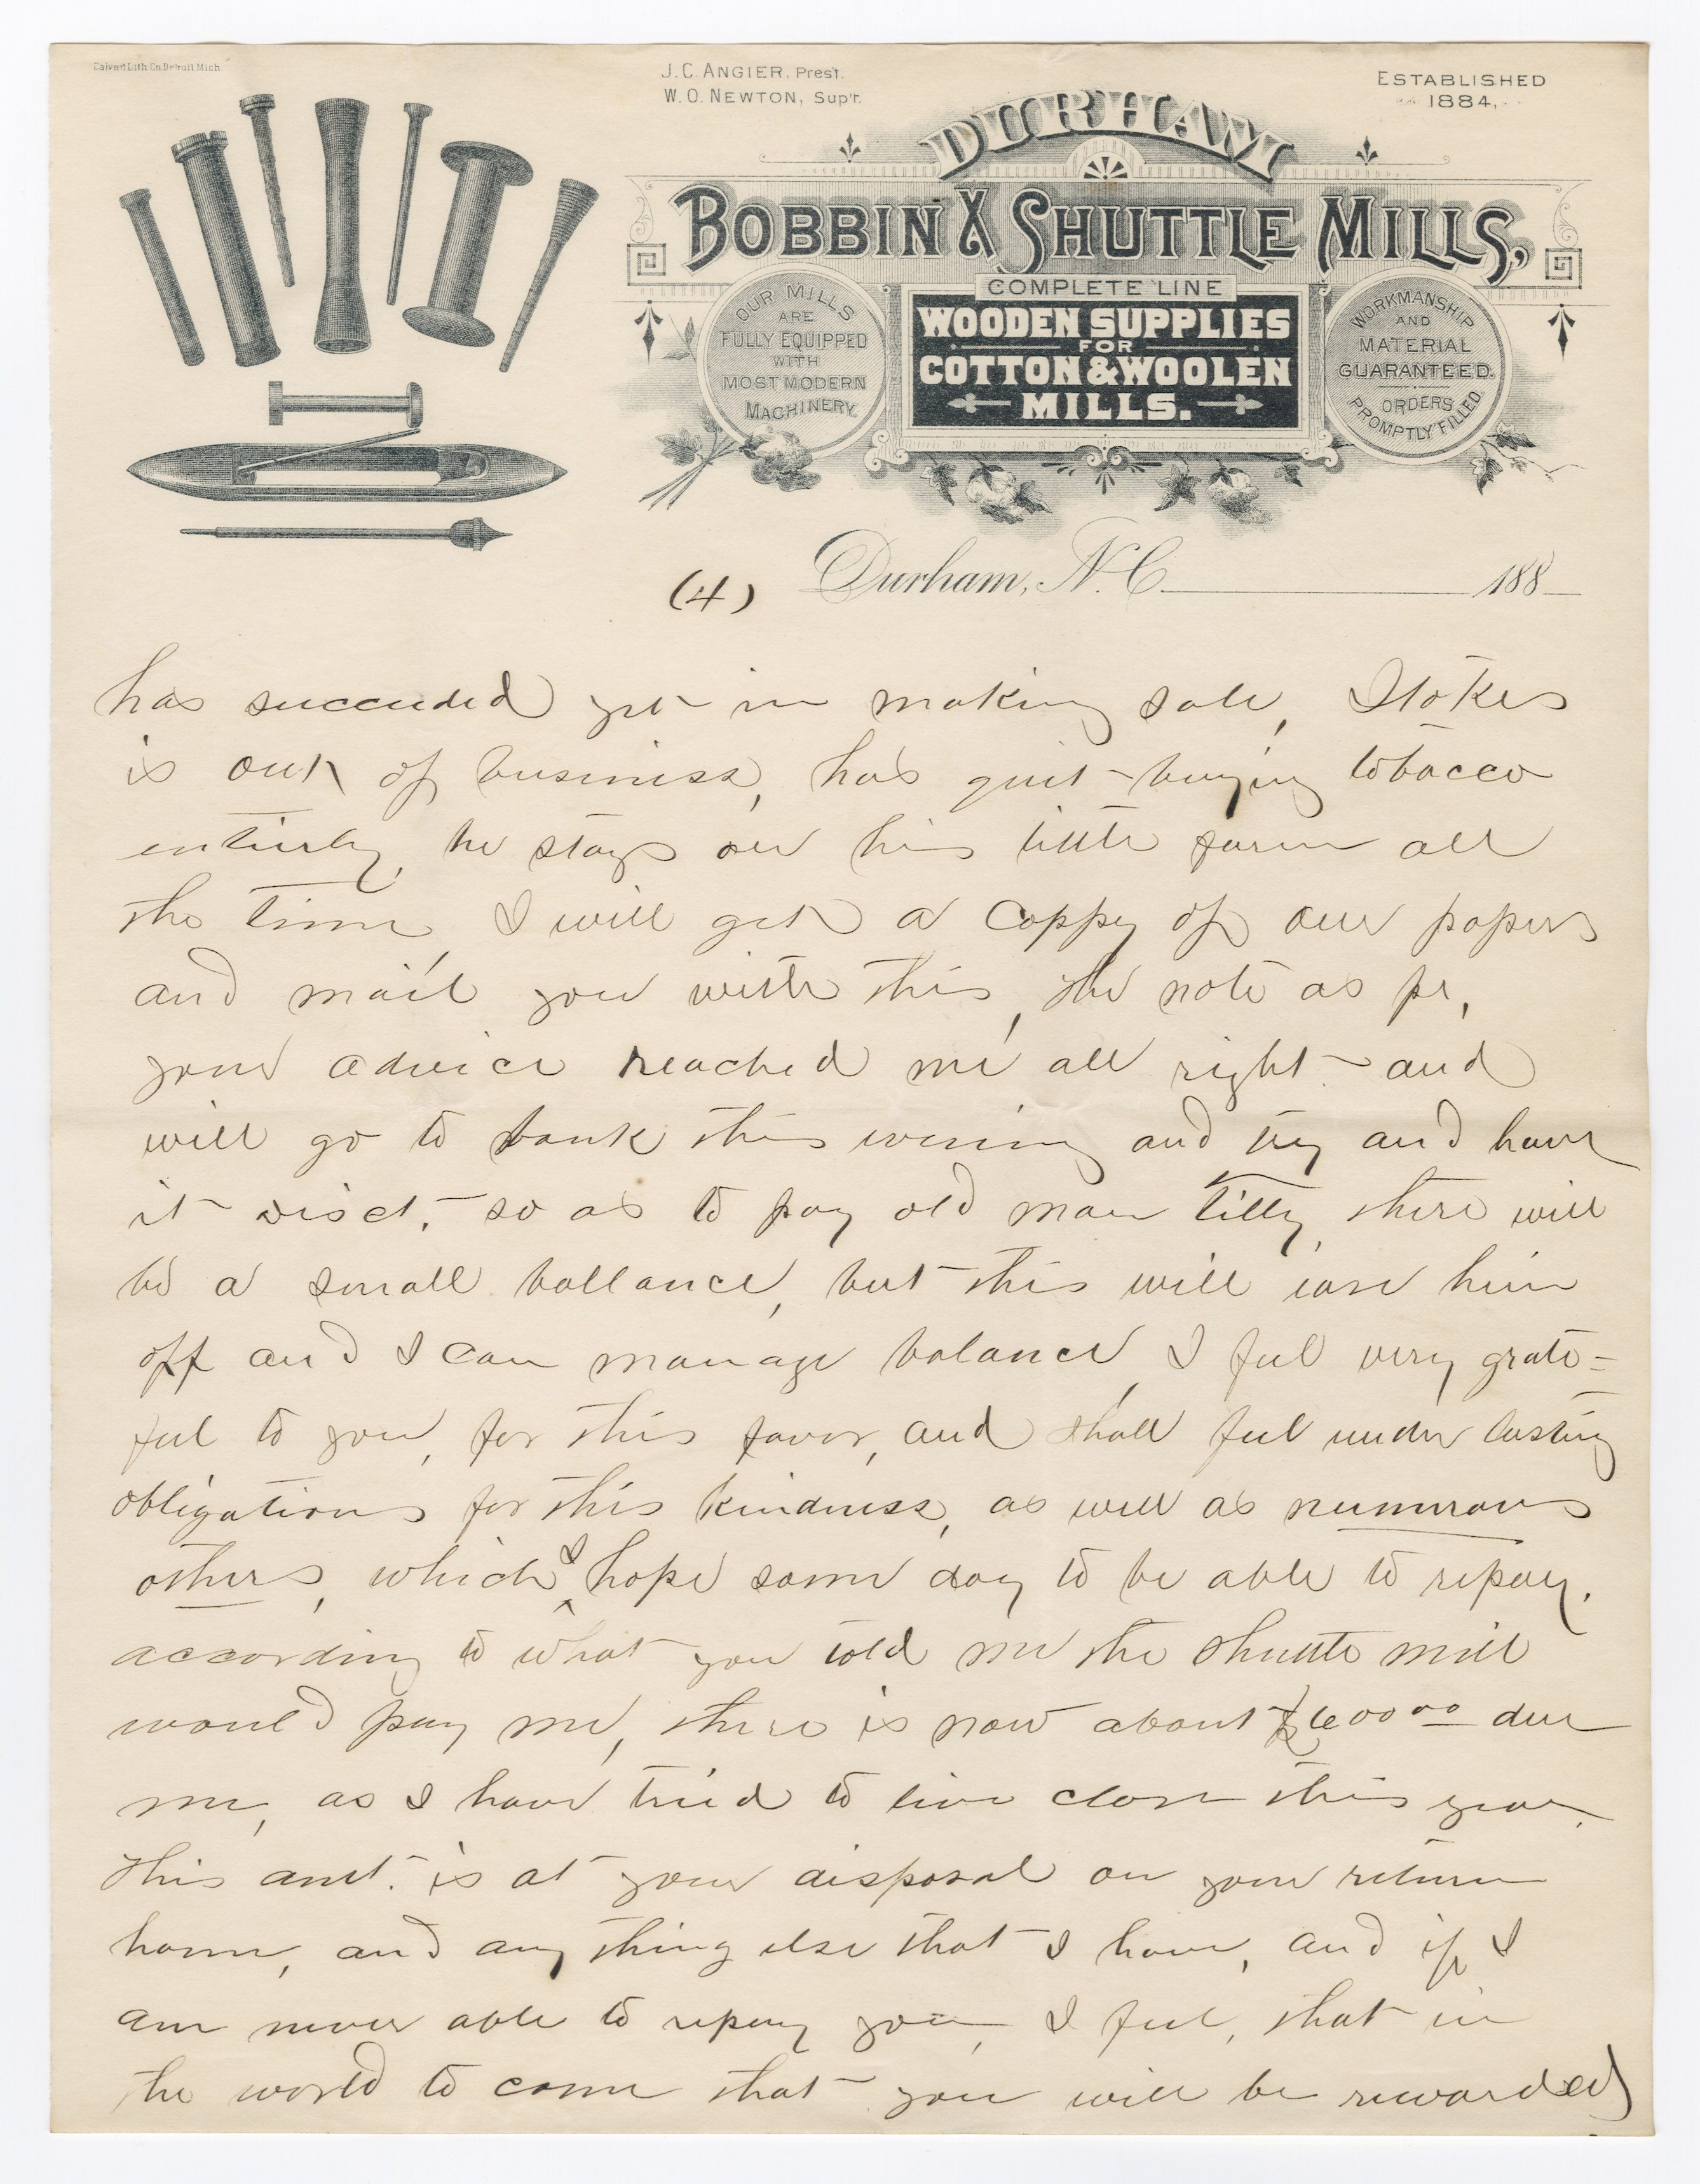 Calvert Lith. Co. Detroit, Mich.
J. C. ANGIER, Prest.
W. O. NEWTON, Sup'r.
ESTABLISHED
1884.
DURHAM
BOBBIN & SHUTTLE MILLS,
COMPLETE LINE
WOODEN SUPPLIES
FOR
COTTON & WOOLEN
MILLS.
OUR MILLS
ARE
FULLY EQUIPPED
WITH
MOST MODERN
MACHINERY.
WORKMANSHIP
AND
MATERIAL
GUARANTEED.
ORDERS
PROMPTLY FILLED.
(4) Durham, N.C. 188
has succeeded yet in making sale, Stokes
is out of business, has quit buying tobacco
entirely, he stays on his little farm all
the time, I will get a coppy of our papers
and mail you with this, the note as pr,
your advice reached me all right and
will go to bank this evening and try and have
it disct, so as to pay old man Lilly, there will
be a small ballance, but this will ease him
off and I can manage balance, I feel very grate=
ful to you, for this favor, and shall feel under lasting
obligations for this kindness, as well as numerous
others, which I hope some day to be able to repay.
according to what you told me the shuttle mill
would pay me, there is now about $600 00 due
me, as I have tried to live close this year.
This amt. is at your disposal on your return
home, and any thing else that I have, and if I
am never able to repay you, I feel, that in
the world to come that you will be rewarded,